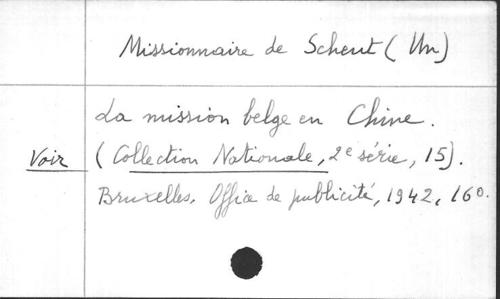 Missionnaire de Scheut (Un)
La mission belge en Chine.
Voir (Collection Nationale, 2e série, 15).
Bruxelles, Office de publicité, 1942, 16o.